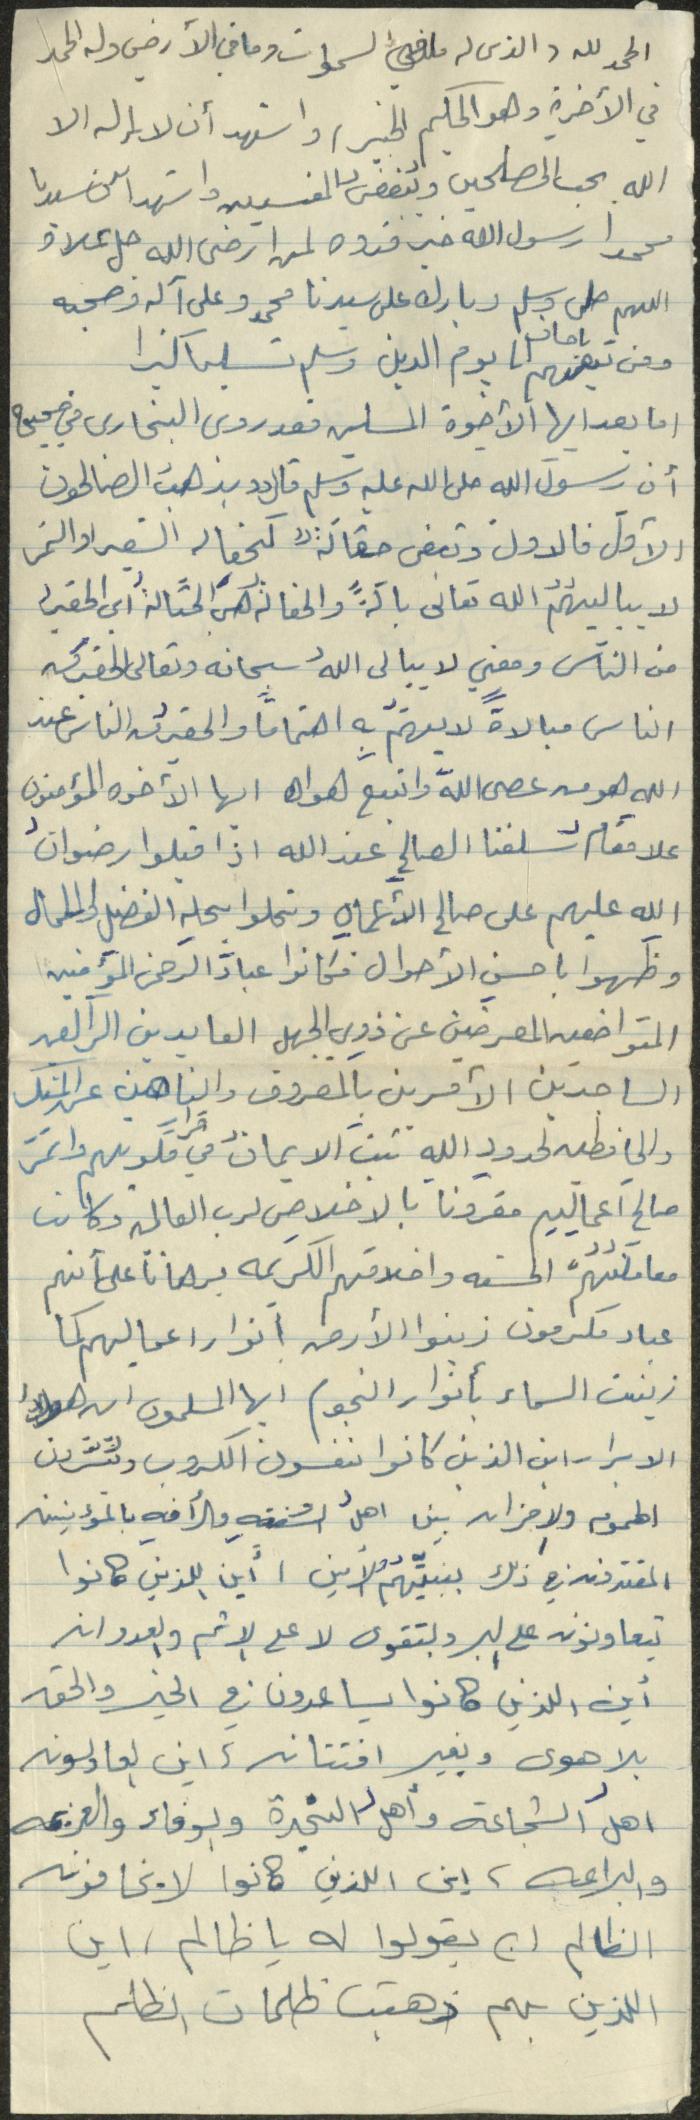 الحمد لله (الذي له ما في السموات وما في الأرض وله الحمد
في الآخرة وهو الحكيم الخبير) واشهد أن لا إله الا
الله يحب المصلحين ويبغض المفسدين واشهد أن سيدنا
محمداً رسول الله خير قدوه لمن ارضى الله جل علاه
اللهم صلى وسلم وبارك على سيدنا محمد وعلى آله وصحبه
ومن تبعهم باحسان الى يوم الدين وسلم تسليما كثيرا
اما بعد ايها الأخوة المسلمين فقد روى البخارى في صحيحه
أن رسول الله صلى الله عليه وسلم قال (( يذهب الصالحون
الأول فالاول وتبقى حفالة )) كحفاله الشعير او التمر
لا يباليهم الله تعالى بالةً والحفالة هي الحثالة أي الحقير
من الناس ومعني لا يبالى الله سبحانه وتعالى الحقير من
الناس مبالاةً لا يهتم به اهتماماً والحقير من الناس عند
الله هو من عصى الله واتبع هواه ايها الأخوه المؤمنون
علا مقام سلفنا الصالح عند الله اذا قبلوا رضوان
الله عليهم على صالح الأعمال وتحلوا بحلية الفضل والجمال
وظهروا باحسن الأحوال فكانوا عباد الرحمن المؤمنين
المتواضعين المعرضين عن ذوي الجهل العابدين الراكعين
الساجدين الآمرين بالمعروف والناهين عن المنكر
والحافظين لحدود الله ثبت الايمان في قلوبهم واثمر
صالح أعمالهم مقروناً بالاخلاص لرب العالمين وكانت
معاملتهم الحسنه واخلاقهم الكريمه برهاناً على أنهم
عباد مكرمون زينوا الأرض بأنوار اعمالهم كما
زينت السماء بأنوار النجوم ايها المسلمون اين هولاء
الابرار اين الذين كانوا ينفسون الكروب
الهموم والاحزان بين اهل والرأفه بالمؤمنين
المقتدين في ذلك بنبيهم الأمين ، أين اللذين كانوا
يتعاونون على البر والتقوى لا على الاثم والعدوان
أين اللذين كانوا يساعدون في الخير والحق
بلا هوى وبغير افتتان ، اين العادلون
اهل الشجاعة وأهل النجدة والوفاء والعزيمه
والبراعه ، اين اللذين كانوا لا يخافون
الظالم ان يقولوا له يا ظالم ، اين
اللذين بهم ذهبت ظلمات الظلم